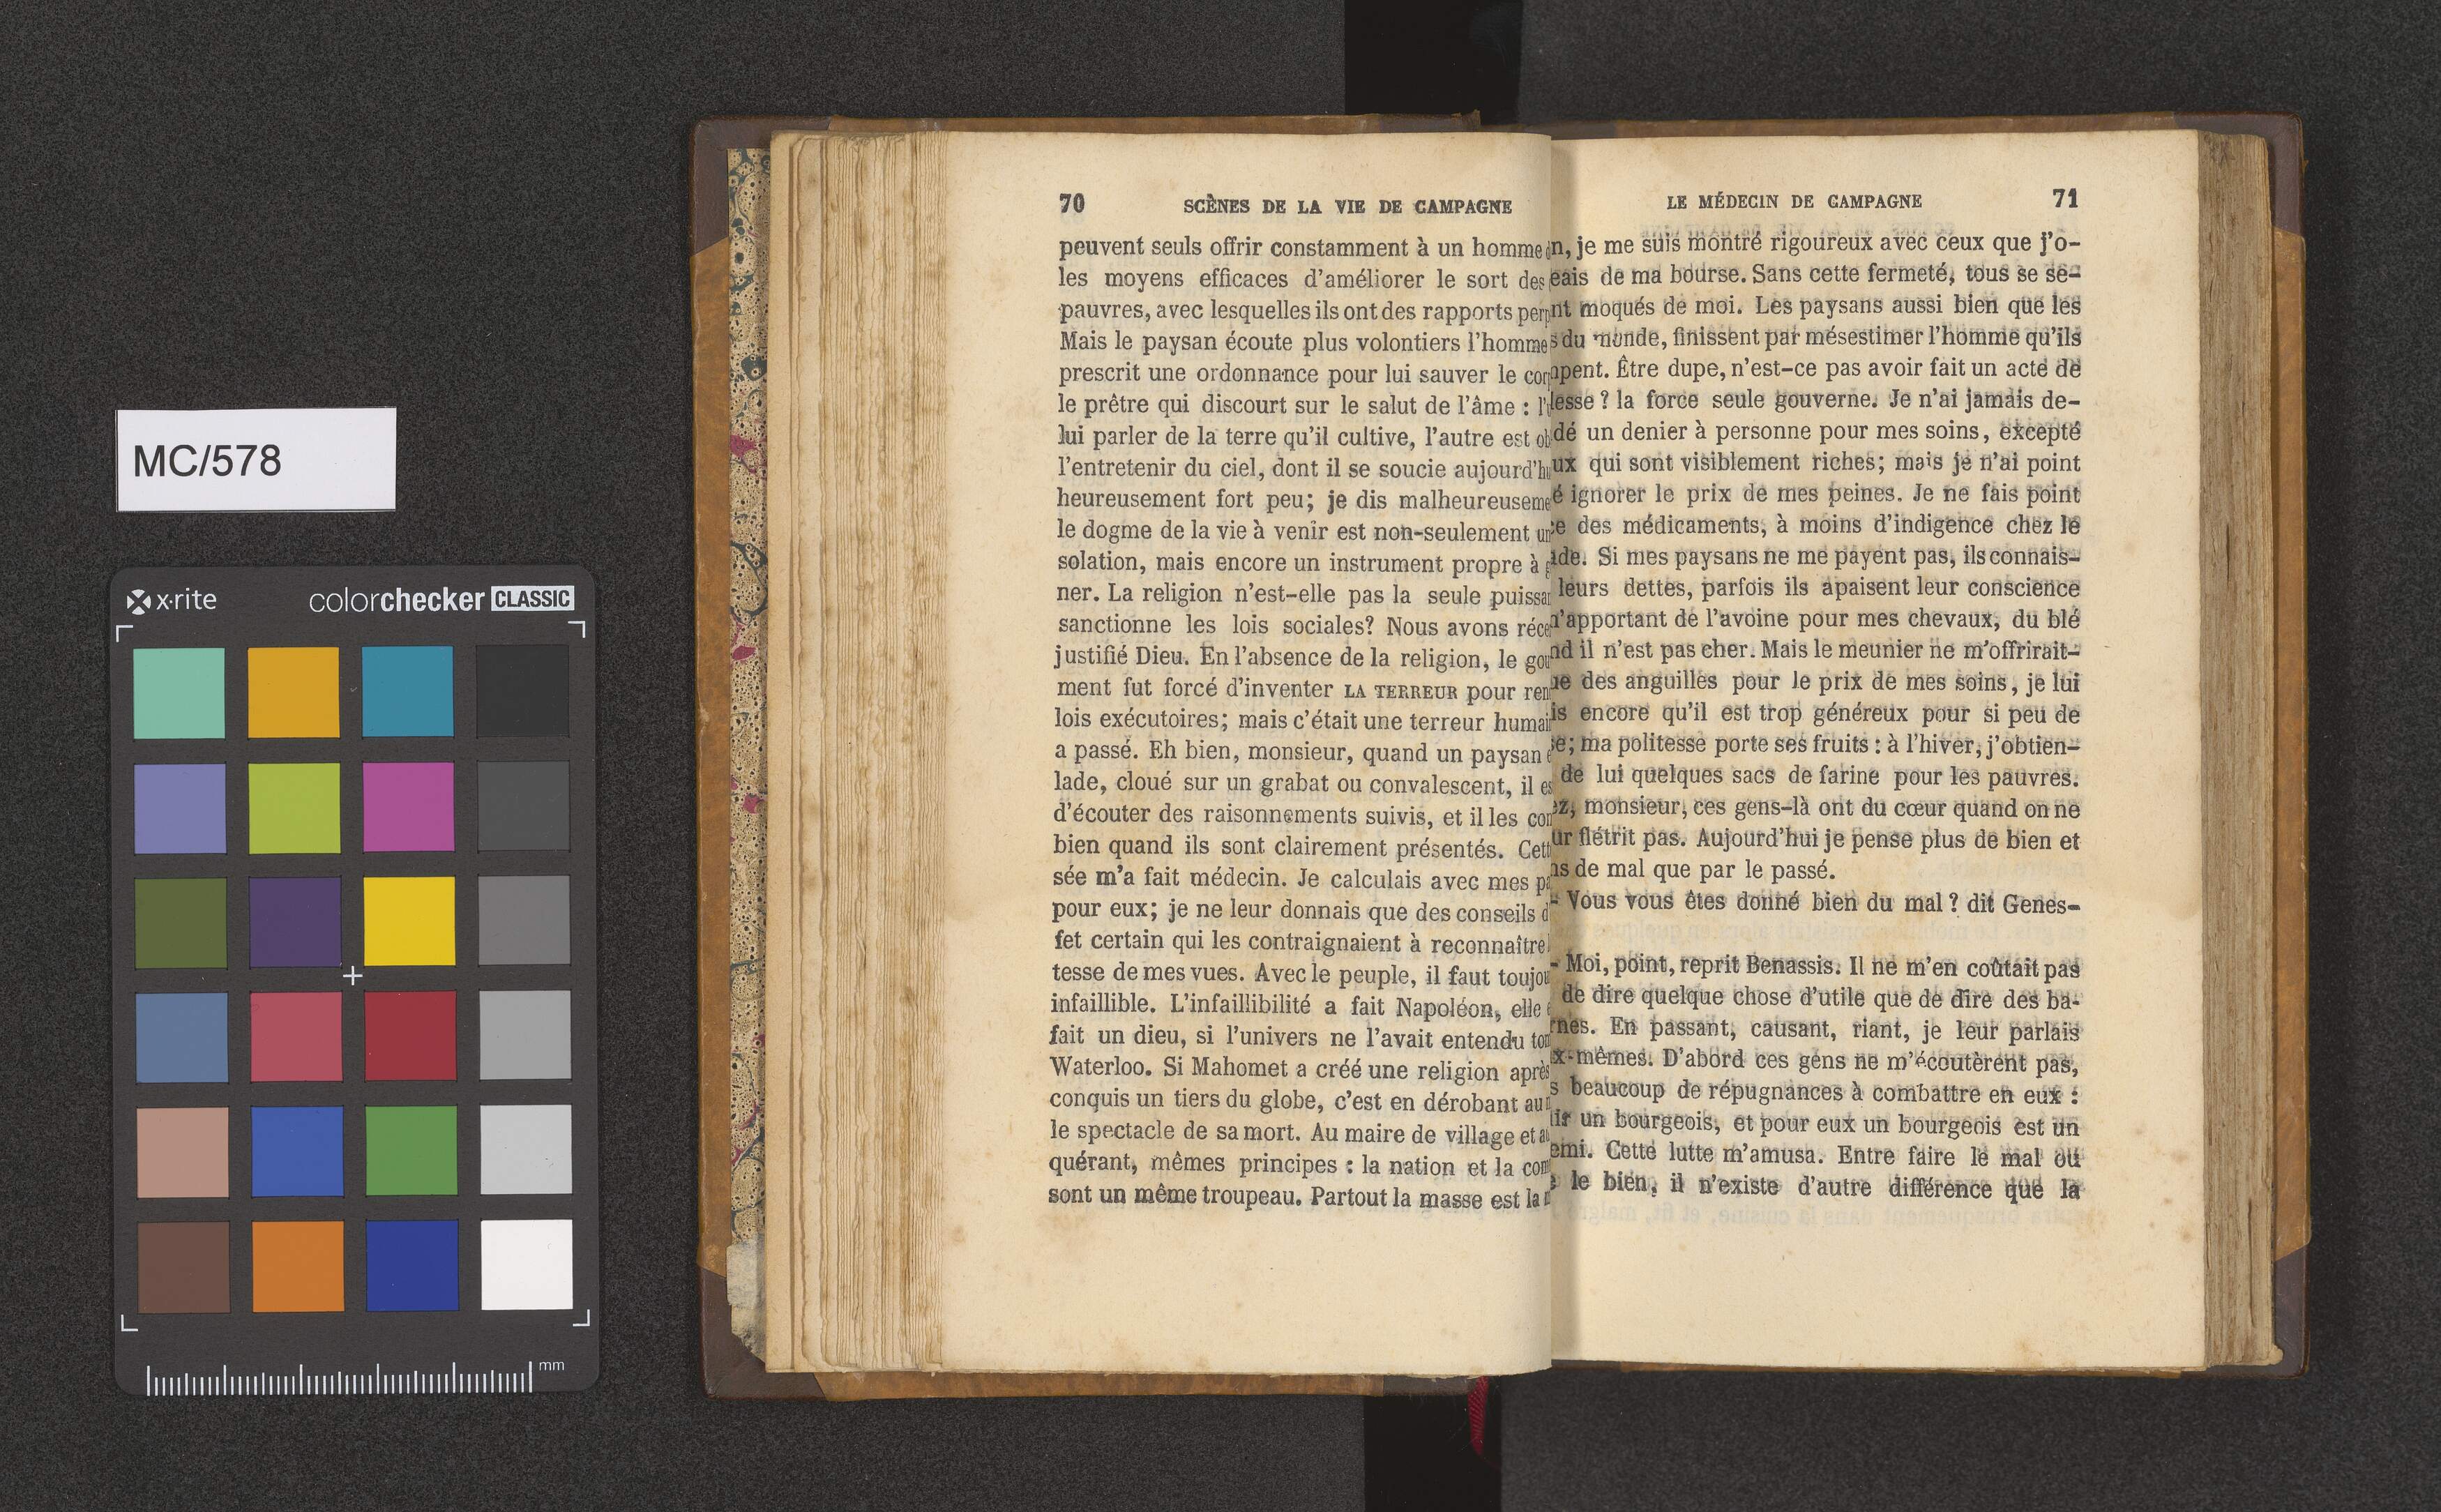 MC/578
x·rite
colorchecker CLASSIC
mm
70
SCÈNES DE LA VIE DE CAMPAGNE
peuvent seuls offrir constamment à un homme
les moyens efficaces d'améliorer le sort des
pauvres, avec lesquelles ils ont des rapports
Mais le paysan écoute plus volontiers l'homme
prescrit une ordonnance pour lui sauver le
le prêtre qui discourt sur le salut de l'âme :
lui parler de la terre qu'il cultive, l'autre est
l'entretenir du ciel, dont il se soucie
heureusement fort peu; je dis
le dogme de la vie à venir est non-seulement
solation, mais encore un instrument propre à
ner. La religion n'est-elle pas la seule
sanctionne les lois sociales? Nous avons
justifié Dieu. En l'absence de la religion, le
ment fut forcé d'inventer LA TERREUR pour
lois exécutoires; mais c'était une terreur
a passé. Eh bien, monsieur, quand un paysan
lade, cloué sur un grabat ou convalescent, il
d'écouter des raisonnements suivis, et il les
bien quand ils sont clairement présentés.
sée m'a fait médecin. Je calculais avec mes
pour eux; je ne leur donnais que des conseils
fet certain qui les contraignaient à reconnaître
tesse de mes vues. Avec le peuple, il faut
infaillible. L'infaillibilité a fait Napoléon, elle
fait un dieu, si l'univers ne l'avait entendu
Waterloo. Si Mahomet a créé une religion après
conquis un tiers du globe, c'est en dérobant au
le spectacle de sa mort. Au maire de village et
quérant, mêmes principes : la nation et la
sont un même troupeau. Partout la masse est la
LE MÉDECIN DE CAMPAGNE
71
je me suis montré rigoureux avec ceux que j'o-
de ma bourse. Sans cette fermeté, tous se se-
moqués de moi. Les paysans aussi bien que les
du monde, finissent par mésestimer l'homme qu'ils
Être dupe, n'est-ce pas avoir fait un acte de
la force seule gouverne. Je n'ai jamais de-
dé un denier à personne pour mes soins, excepté
qui sont visiblement riches; mais je n'ai point
ignorer le prix de mes peines. Je ne fais point
des médicaments, à moins d'indigence chez le
Si mes paysans ne me payent pas, ils connais-
leurs dettes, parfois ils apaisent leur conscience
m'apportant de l'avoine pour mes chevaux, du blé
il n'est pas cher. Mais le meunier ne m'offrirait-
des anguilles pour le prix de mes soins, je lui
encore qu'il est trop généreux pour si peu de
ma politesse porte ses fruits : à l'hiver, j'obtien-
de lui quelques sacs de farine pour les pauvres.
monsieur, ces gens-là ont du cœur quand on ne
flétrit pas. Aujourd'hui je pense plus de bien et
de mal que par le passé.
- Vous vous êtes donné bien du mal ? dit Genes-
- Moi, point, reprit Benassis. Il ne m'en coûtait pas
de dire quelque chose d'utile que de dire des ba-
En passant, causant, riant, je leur parlais
-mêmes. D'abord ces gens ne m'écoutèrent pas,
beaucoup de répugnances à combattre en eux :
un bourgeois, et pour eux un bourgeois est un
Cette lutte m'amusa. Entre faire le mal ou
le bien, il n'existe d'autre différence que la